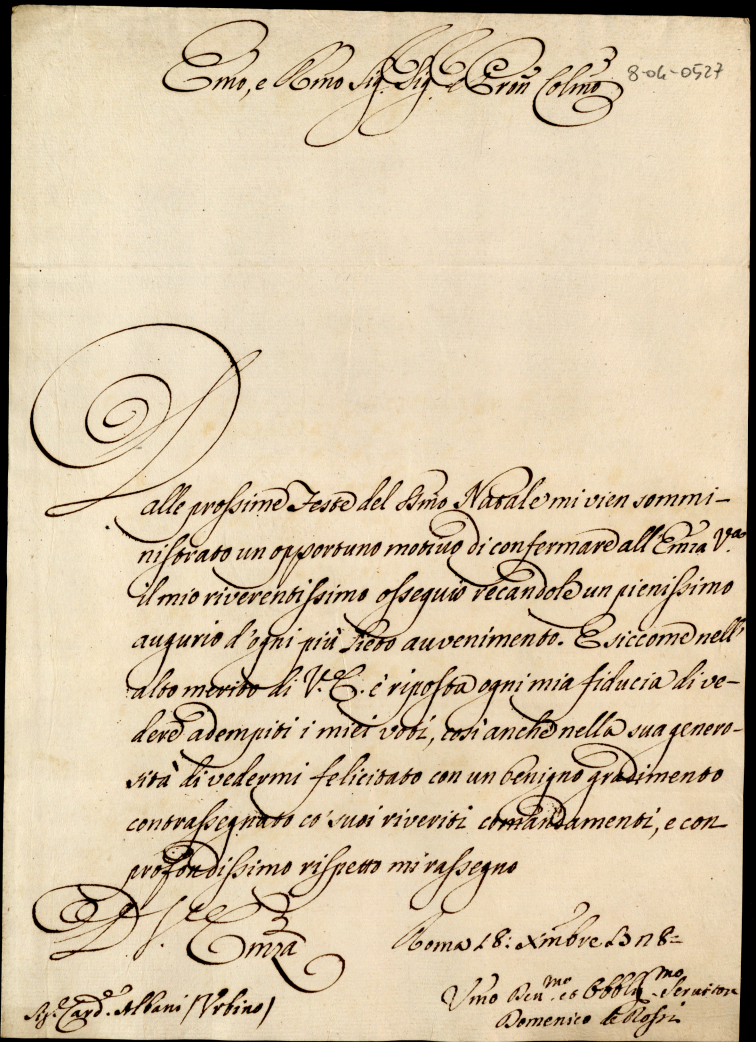 Emo, e Rmo Sig. Sig. e Pron Colmo
8-04-0527
Dalle prossime Feste del Ssmo Natale mi vien sommi-
nistrato un opportuno motivo di confermare all'Emza Va
il mio riverentissimo ossequio recandole un pienissimo
augurio d'ogni più lieto auvenimento. E siccome nell'
alto merito di V. E. è riposta ogni mia fiducia di ve-
dere adempiti i miei voti, così anche nella sua genero-
sità di vedermi felicitato con un benigno gradimento
contrassegnato co' suoi riveriti comandamenti, e con
profondissimo rispetto mi rassegno
D V. Emza
Roma 18: Xmbre
Sig. Card. Albani /Urbino/
Umo Devmo et Obblmo Servitore
Domenico de Rossi